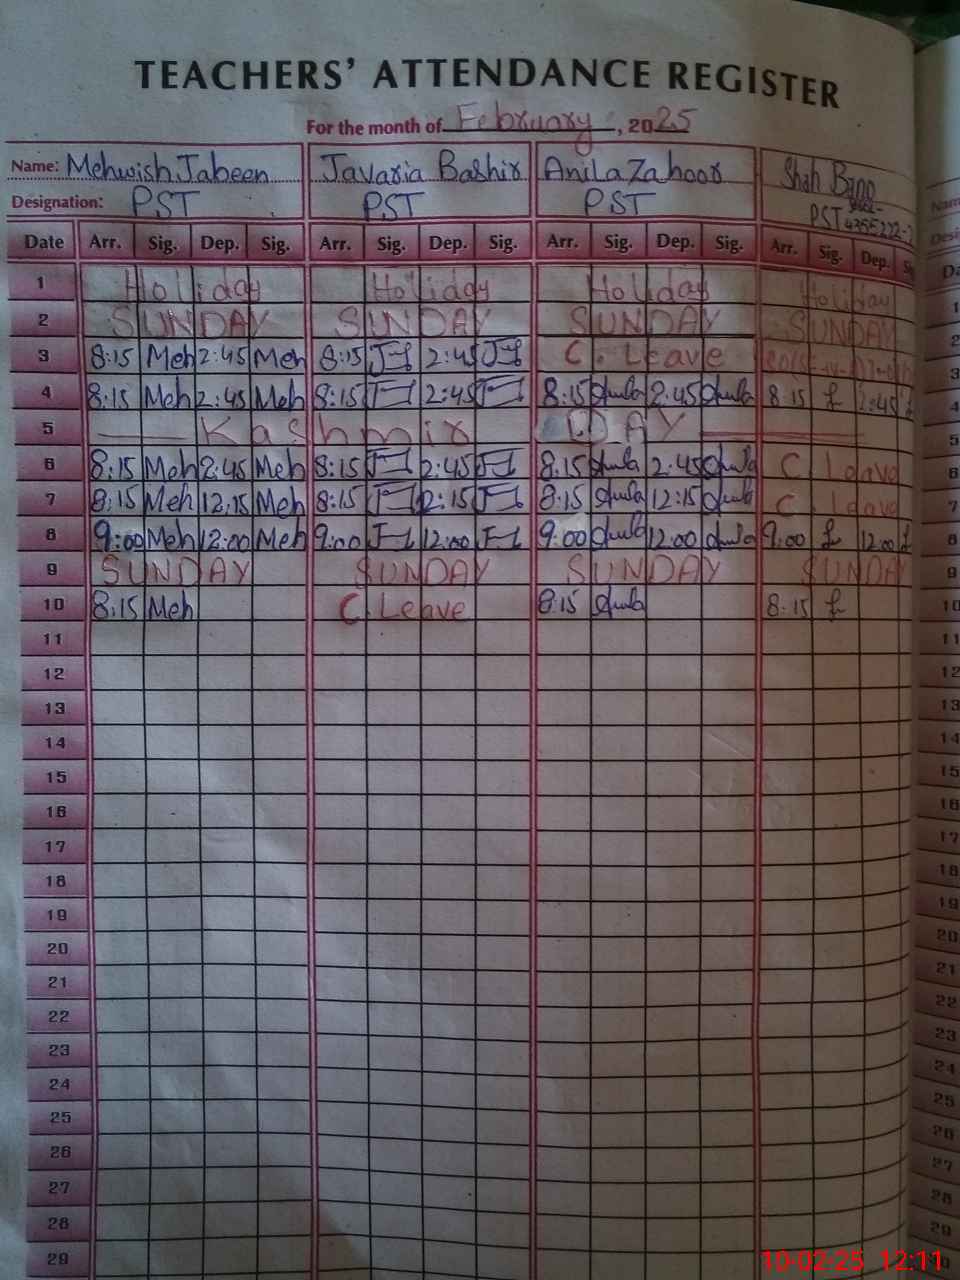 TEACHERS' ATTENDANCE REGISTER
For the month of February, 2025
Name: Mehwish Jabeen Javaria Bashir Anila Zahoor Shah Bano
Designation: PST PST PST PST
Date Arr. Sig. Dep. Sig. Arr. Sig. Dep. Sig. Arr. Sig. Dep. Sig. Arr. Sig. Dep.
1 Holiday Holiday Holiday Holiday
2 SUNDAY SUNDAY SUNDAY SUNDAY
3 8:15 Meh 2:45 Meh 8:15 2:45 C. Leave
4 8:15 Meh 2:45 Meh 8:15 2:45 8:15 2:45 8:15 2:45
5 Kashmir DAY
6 8:15 Meh 2:45 Meh 8:15 2:45 8:15 2:45 C Leave
7 8:15 Meh 12:15 Meh 8:15 12:15 8:15 12:15 C. Leave
8 9:00 Meh 12:00 Meh 9:00 12:00 9:00 12:00 9:00 12:00
9 SUNDAY SUNDAY SUNDAY SUNDAY
10 8:15 Meh C. Leave 8:15 8:15
11
12
13
14
15
16
17
18
19
20
21
22
23
24
25
26
27
28
29
10-02-25 12:11